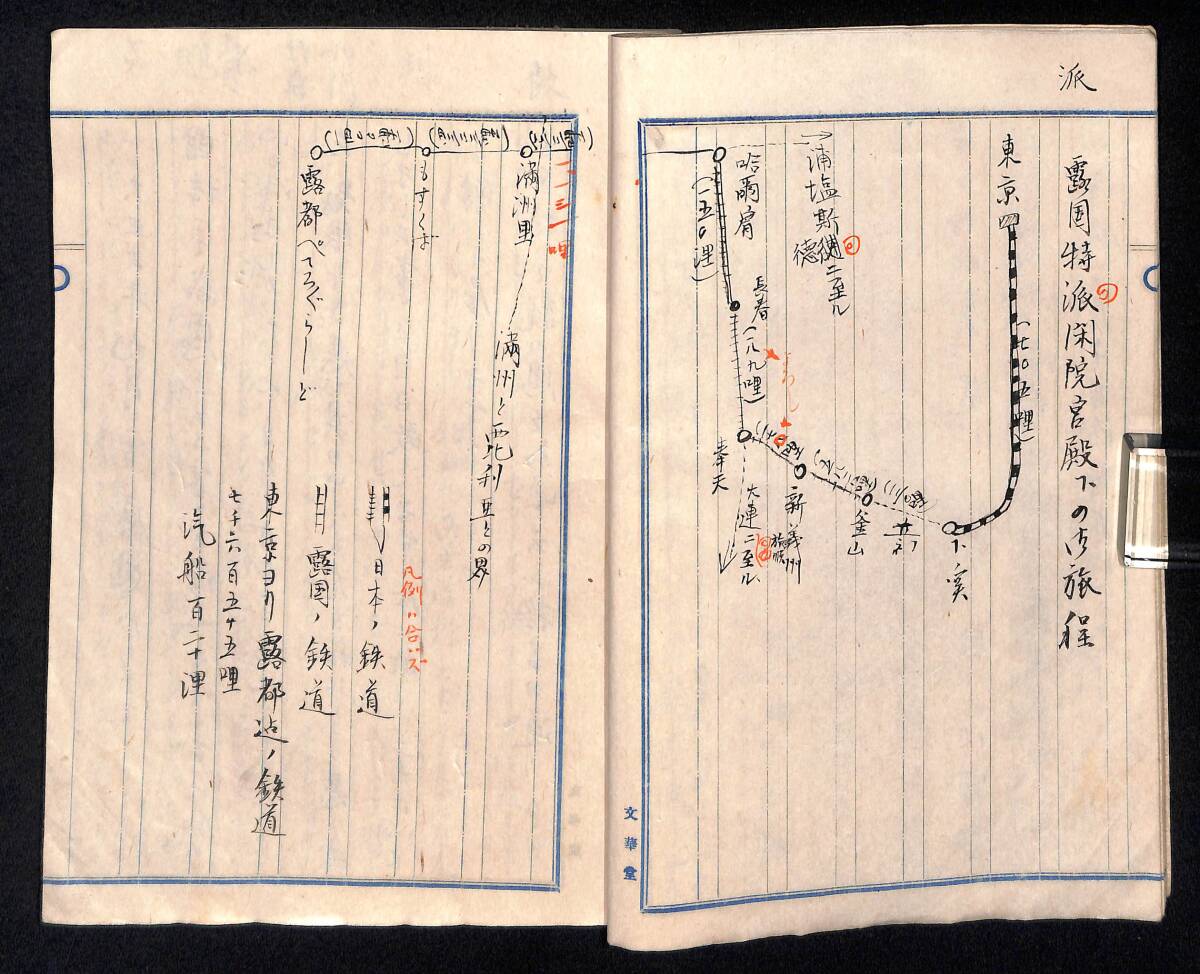 派
露国特派閑院宮殿下の御旅程
の
東京
(七〇五哩)
下ノ関
釜山
新義州
奉天
大連
旅順
ニ至ル
長春
(一八九哩)
哈爾賓
(一五〇哩)
浦塩斯徳ニ至ル
文華堂
満洲里
満州と西比利亜との界
もすくば
露都ぺてろぐらーど
凡例ハ合ハズ
日本ノ鉄道
露国ノ鉄道
東京ヨリ露都迠ノ鉄道
七千六百五十五哩
汽船百二十浬